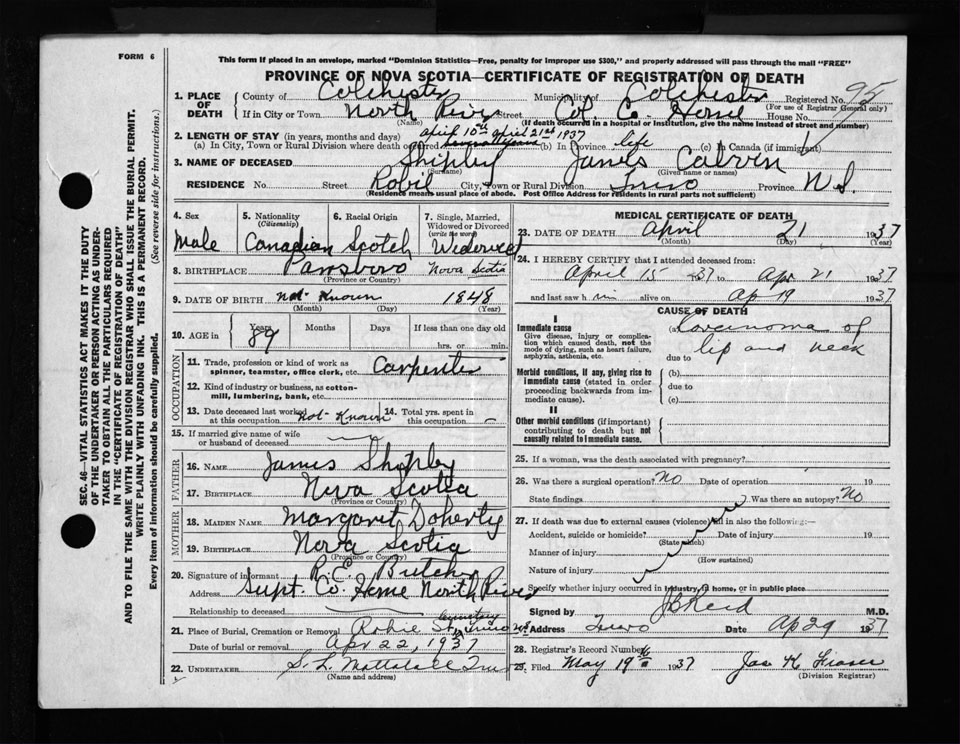 FORM 6
This form if placed in an envelope, marked "Dominion Statistics—Free, penalty for improper use $300," and properly addressed will pass through the mail "FREE"
PROVINCE OF NOVA SCOTIA—CERTIFICATE OF REGISTRATION OF DEATH
1. PLACE OF DEATH County of Colchester Municipality of Colchester Registered No. 95
(For use of Registrar General only)
If in City or Town North River Street Col. Co. Home House No.
(Name) (If death occurred in a hospital or institution, give the name instead of street and number)
2. LENGTH OF STAY (in years, months and days) April 10th april 21st 1937
(a) In City, Town or Rural Division where death occurred (b) In Province life (c) In Canada (if immigrant)
3. NAME OF DECEASED Shipley James Calvin
(Surname) (Given name or names)
RESIDENCE No. Street Robie City, Town or Rural Division Truro Province N S
(Residence means usual place of abode. Post Office Address for residents in rural parts not sufficient)
4. Sex Male
5. Nationality (Citizenship) Canadian
6. Racial Origin Scotch
7. Single, Married, Widowed or Divorced (write the word) Widowed
8. BIRTHPLACE Parrsboro Nova Scotia
(Province or Country)
9. DATE OF BIRTH not Known 1848
(Month) (Day) (Year)
10. AGE in Years Months Days If less than one day old
89 hrs. or min.
OCCUPATION
11. Trade, profession or kind of work as spinner, teamster, office clerk, etc. Carpenter
12. Kind of industry or business, as cotton-mill, lumbering, bank, etc.
13. Date deceased last worked at this occupation not Known 14. Total yrs. spent in this occupation —
15. If married give name of wife or husband of deceased
FATHER
16. NAME James Shipley
17. BIRTHPLACE Nova Scotia
(Province or Country)
MOTHER
18. MAIDEN NAME Margaret Doherty
19. BIRTHPLACE Nova Scotia
(Province or Country)
20. Signature of informant R. E. Butcher
Address Supt. Co. Home North River
Relationship to deceased
21. Place of Burial, Cremation or Removal Robie St cemetery Truro NS
Date of burial or removal Apr 22, 1937
22. UNDERTAKER S. L. Truro
(Name and address)
MEDICAL CERTIFICATE OF DEATH
23. DATE OF DEATH April 21 1937
(Month) (Day) (Year)
24. I HEREBY CERTIFY that I attended deceased from:
April 15 1937 to Apr 21 1937
and last saw him alive on Ap 19 1937
CAUSE OF DEATH
I
Immediate cause
Give disease, injury or complication which caused death, not the mode of dying, such as heart failure, asphyxia, asthenia, etc.
(a) Carcinoma of lip and neck
due to
Morbid conditions, if any, giving rise to immediate cause (stated in order proceeding backwards from immediate cause).
(b)
due to
(c)
II
Other morbid conditions (if important) contributing to death but not causally related to immediate cause.
25. If a woman, was the death associated with pregnancy?
26. Was there a surgical operation? No Date of operation 19
State findings Was there an autopsy? No
27. If death was due to external causes (violence) fill in also the following:—
Accident, suicide or homicide? Date of injury 19
(State which)
Manner of injury
(How sustained)
Nature of injury
Specify whether injury occurred in industry, home, or in public place
Signed by J C Reid M.D.
Address Truro Date Ap 29 1937
28. Registrar's Record Number
29. Filed May 19 1937 Jas K Fraser
(Division Registrar)
SEC. 46—VITAL STATISTICS ACT MAKES IT THE DUTY
OF THE UNDERTAKER OR PERSON ACTING AS UNDER-
TAKER TO OBTAIN ALL THE PARTICULARS REQUIRED
IN THE "CERTIFICATE OF REGISTRATION OF DEATH"
AND TO FILE THE SAME WITH THE DIVISION REGISTRAR WHO SHALL ISSUE THE BURIAL PERMIT.
WRITE PLAINLY WITH UNFADING INK. THIS IS A PERMANENT RECORD.
Every item of information should be carefully supplied. (See reverse side for instructions.)